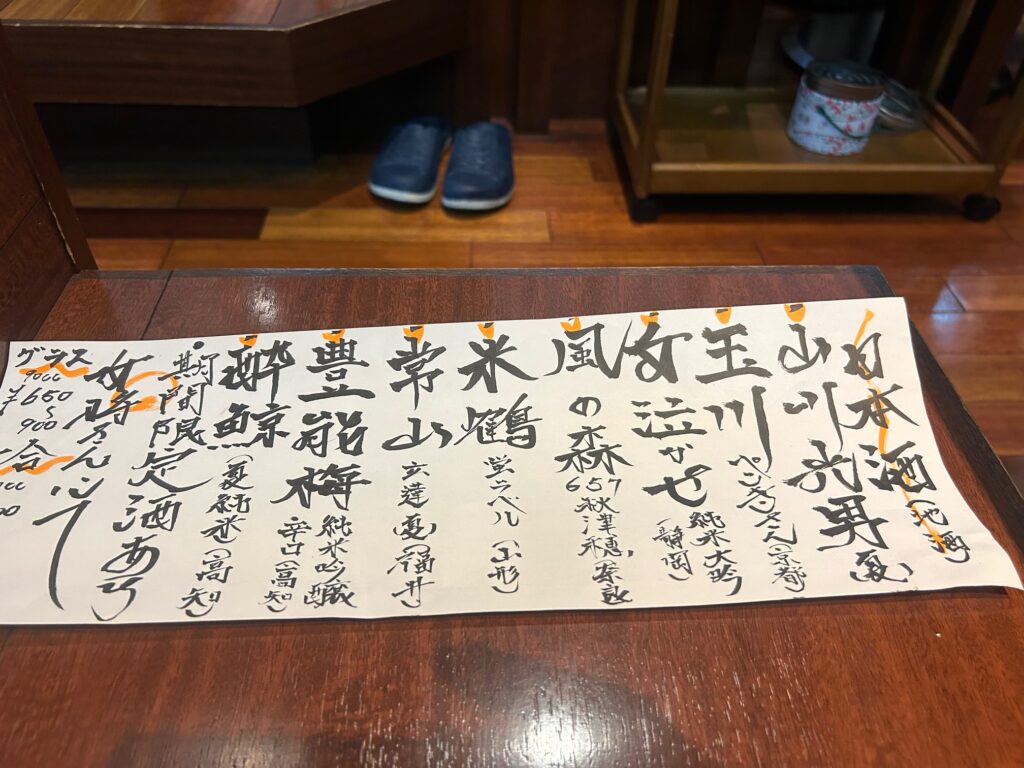 日本酒(地酒)
山川光男(夏)
玉川 ペンギンさん(京都) 純米大吟
女泣かせ(静岡)
風の森657秋津穂(奈良)
米鶴 蛍ラベル(山形)
常山 玄達夏(福井)
豊能梅 純米吟醸 辛口(高知)
酔鯨(夏純米)(高知)
期間限定酒あり
グラス
90cc
¥650
~
900
合